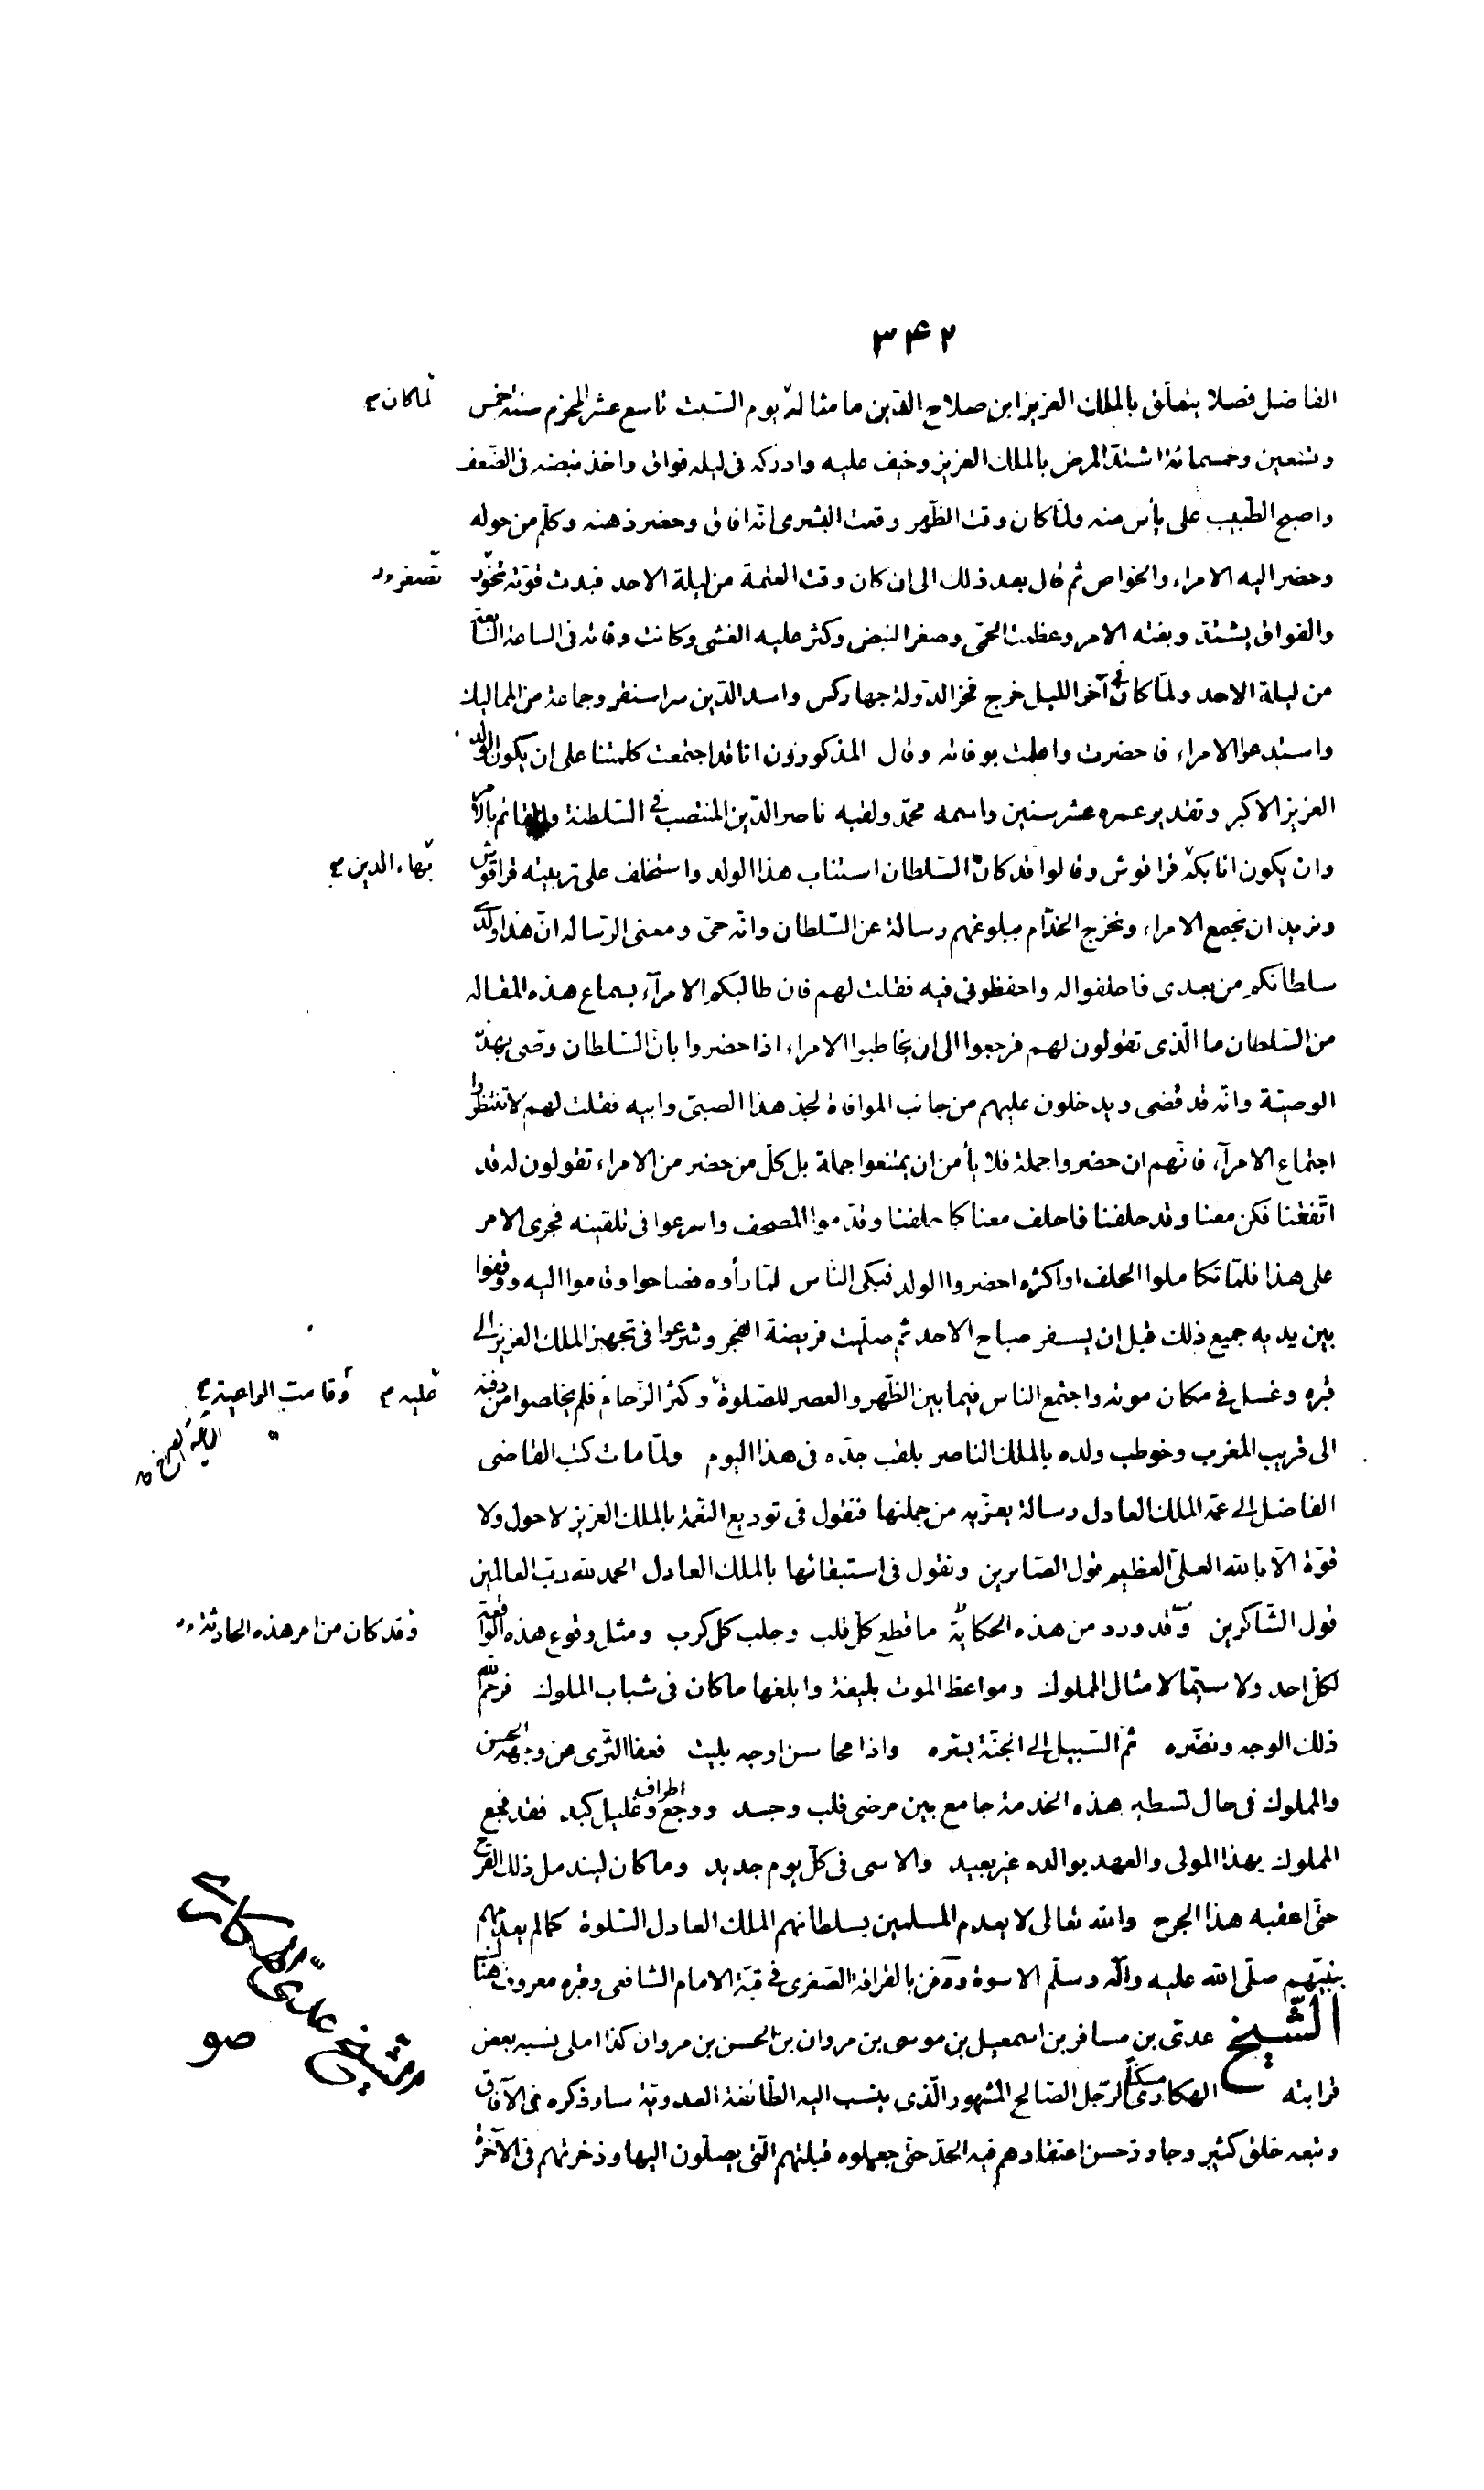 ٣۴٢
الفاضل فصلا يتعلّق بالملك العزيز ابن صلاح الدّين ما مثاله يوم السّبت تاسع عشر المحرّم سنة خمس
لما كان
وتسعين وخمسمائة اشتدّ المرض بالملك العزيز وخيف عليه وادركه فى ليله فواق واخذ نبضه فى الضّعف
واصبح الطّبيب على يأس منه ولمّا كان وقت الظّهر وقعت البشرى انّه افاق وحضر ذهنه وكلّم من حوله
وحضر اليه الامراء والخواص ثم قال بعد ذلك الى ان كان وقت العتمة من ليلة الاحد فبدت قوّته تخوّر
تصغر
والفواق يشتدّ وبغته الامر وعظمت الحمّى وصغر النبض وكثر عليه الغشى وكانت وفاته فى الساعة السّابعة
من ليلة الاحد ولمّا كان فى آخر الليل خرج فخر الدّولة جهاركس واسد الدّين سراسنقر وجماعة من المماليك
واستدعوا الامراء فاحضرت واعلمت بوفاته وقال المذكورون انا قد اجتمعت كلمتنا على ان يكون الولد
العزيز الاكبر وتقدير عمره عشر سنين واسمه محمّد ولقبه ناصر الدّين المنتصب فى السّلطنة والقائم بالامر
وان يكون اتابكه قراقوش وقالوا قد كان السّلطان استناب هذا الولد واستخلف على تربيته قراقوش
بهاء الدين
ونريد ان نجمع الامراء ونخرج الخدّام مبلوغهم رسالة عن السّلطان وانّه حىّ ومعنى الرّساله انّ هذا ولدى
سلطانكم من بعدى فاحلفوا له واحفظونى فيه فقلت لهم فان طالبكم الامرآء بسماع هذه المقاله
من السّلطان ما الّذى تقولون لهم فرجعوا الى ان يخاطبوا الامراء اذا حضروا بانّ السّلطان وصّى بهذه
الوصيّة وانّه قد قضى ويدخلون عليهم من جانب الموافاة لجدّ هذا الصبىّ وابيه فقلت لهم لا تنتظروا
اجتماع الامرآء فانّهم ان حضروا جملة فلا يأمن ان يمتنعوا جملة بل كلّ من حضر من الامراء تقولون له قد
اتّفقنا فكن معنا وقد حلفنا فاحلف معنا كما حلفنا وقدّموا المصحف واسرعوا فى تلقينه فجرى الامر
على هذا فلمّا تكاملوا الحلف او اكثره احضروا الولد فبكى النّاس لمّا رأوه فصاحوا وقاموا اليه ووقفوا
بين يديه جميع ذلك قبل ان يسفر صباح الاحد ثم صلّيت فريضة الفجر وشرعوا فى تجهيز الملك العزيز الى
قبره وغسل فى مكان موته واجتمع الناس فيما بين الظّهر والعصر للصّلوة وكثر الزّحام فلم يخلصوا من دفنه
عليه
وقامت الواعية
الى قريب المغرب وخوطب ولده بالملك الناصر بلقب جدّه فى هذا اليوم ولمّا مات كتب القاضى
الفاضل الى عمّه الملك العادل رسالة يعزّيه من جملتها فنقول فى توديع النّعمة بالملك العزيز لا حول ولا
قوّة الّا بالله العلىّ العظيم قول الصّابرين ونقول فى استبقائها بالملك العادل الحمد لله ربّ العالمين
قول الشّاكرين وقد ورد من هذه الحكاية ما قطع كلّ قلب وجلب كل كرب ومثل وقوع هذه الواقعة
وقد كان من امر هذه الحادثة
لكلّ احد ولا سيّما لامثال المملوك ومواعظ الموت بليغة وابلغها ما كان فى شباب الملوك فرحم الله
ذلك الوجه ونضّره ثمّ السّبيل الى الجنّة يسّره واذا محاسن اوجه بليت فعفا الثّرى عن وجهه الحسن
والمملوك فى حال تسطير هذه الخدمة جامع بين مرضى قلب وجسد ووجع اطراف وغليل كبد فقد فجع
المملوك بهذا المولى والعهد بوالده غير بعيد والاسى فى كلّ يوم جديد وما كان ليندمل ذلك القرح
حتّى اعقبه هذا الجرح والله تعالى لا يعدم المسلمين بسلطانهم الملك العادل السّلوة كما لم يعدمهم
بنبيّهم صلّى الله عليه وآله وسلّم الاسوة ودفن بالقرافة الصّغرى فى قبّة الامام الشافعى وقبره معروف هناك
الشّيخ عدىّ بن مسافر بن اسمعيل بن موسى بن مروان بن الحسن بن مروان كذا املى نسبه بعض
الشيخ عدى الهكارى
صو
قرابته الهكارى مسكنا الرّجل الصّالح المشهور الّذى ينتسب اليه الطّائفة العدويّة سار ذكره فى الآفاق
وتبعه خلق كثير وجاوز حسن اعتقادهم فيه الحدّ حتّى جعلوه قبلتهم الّتى يصلّون اليها وذخرتهم فى الآخرة